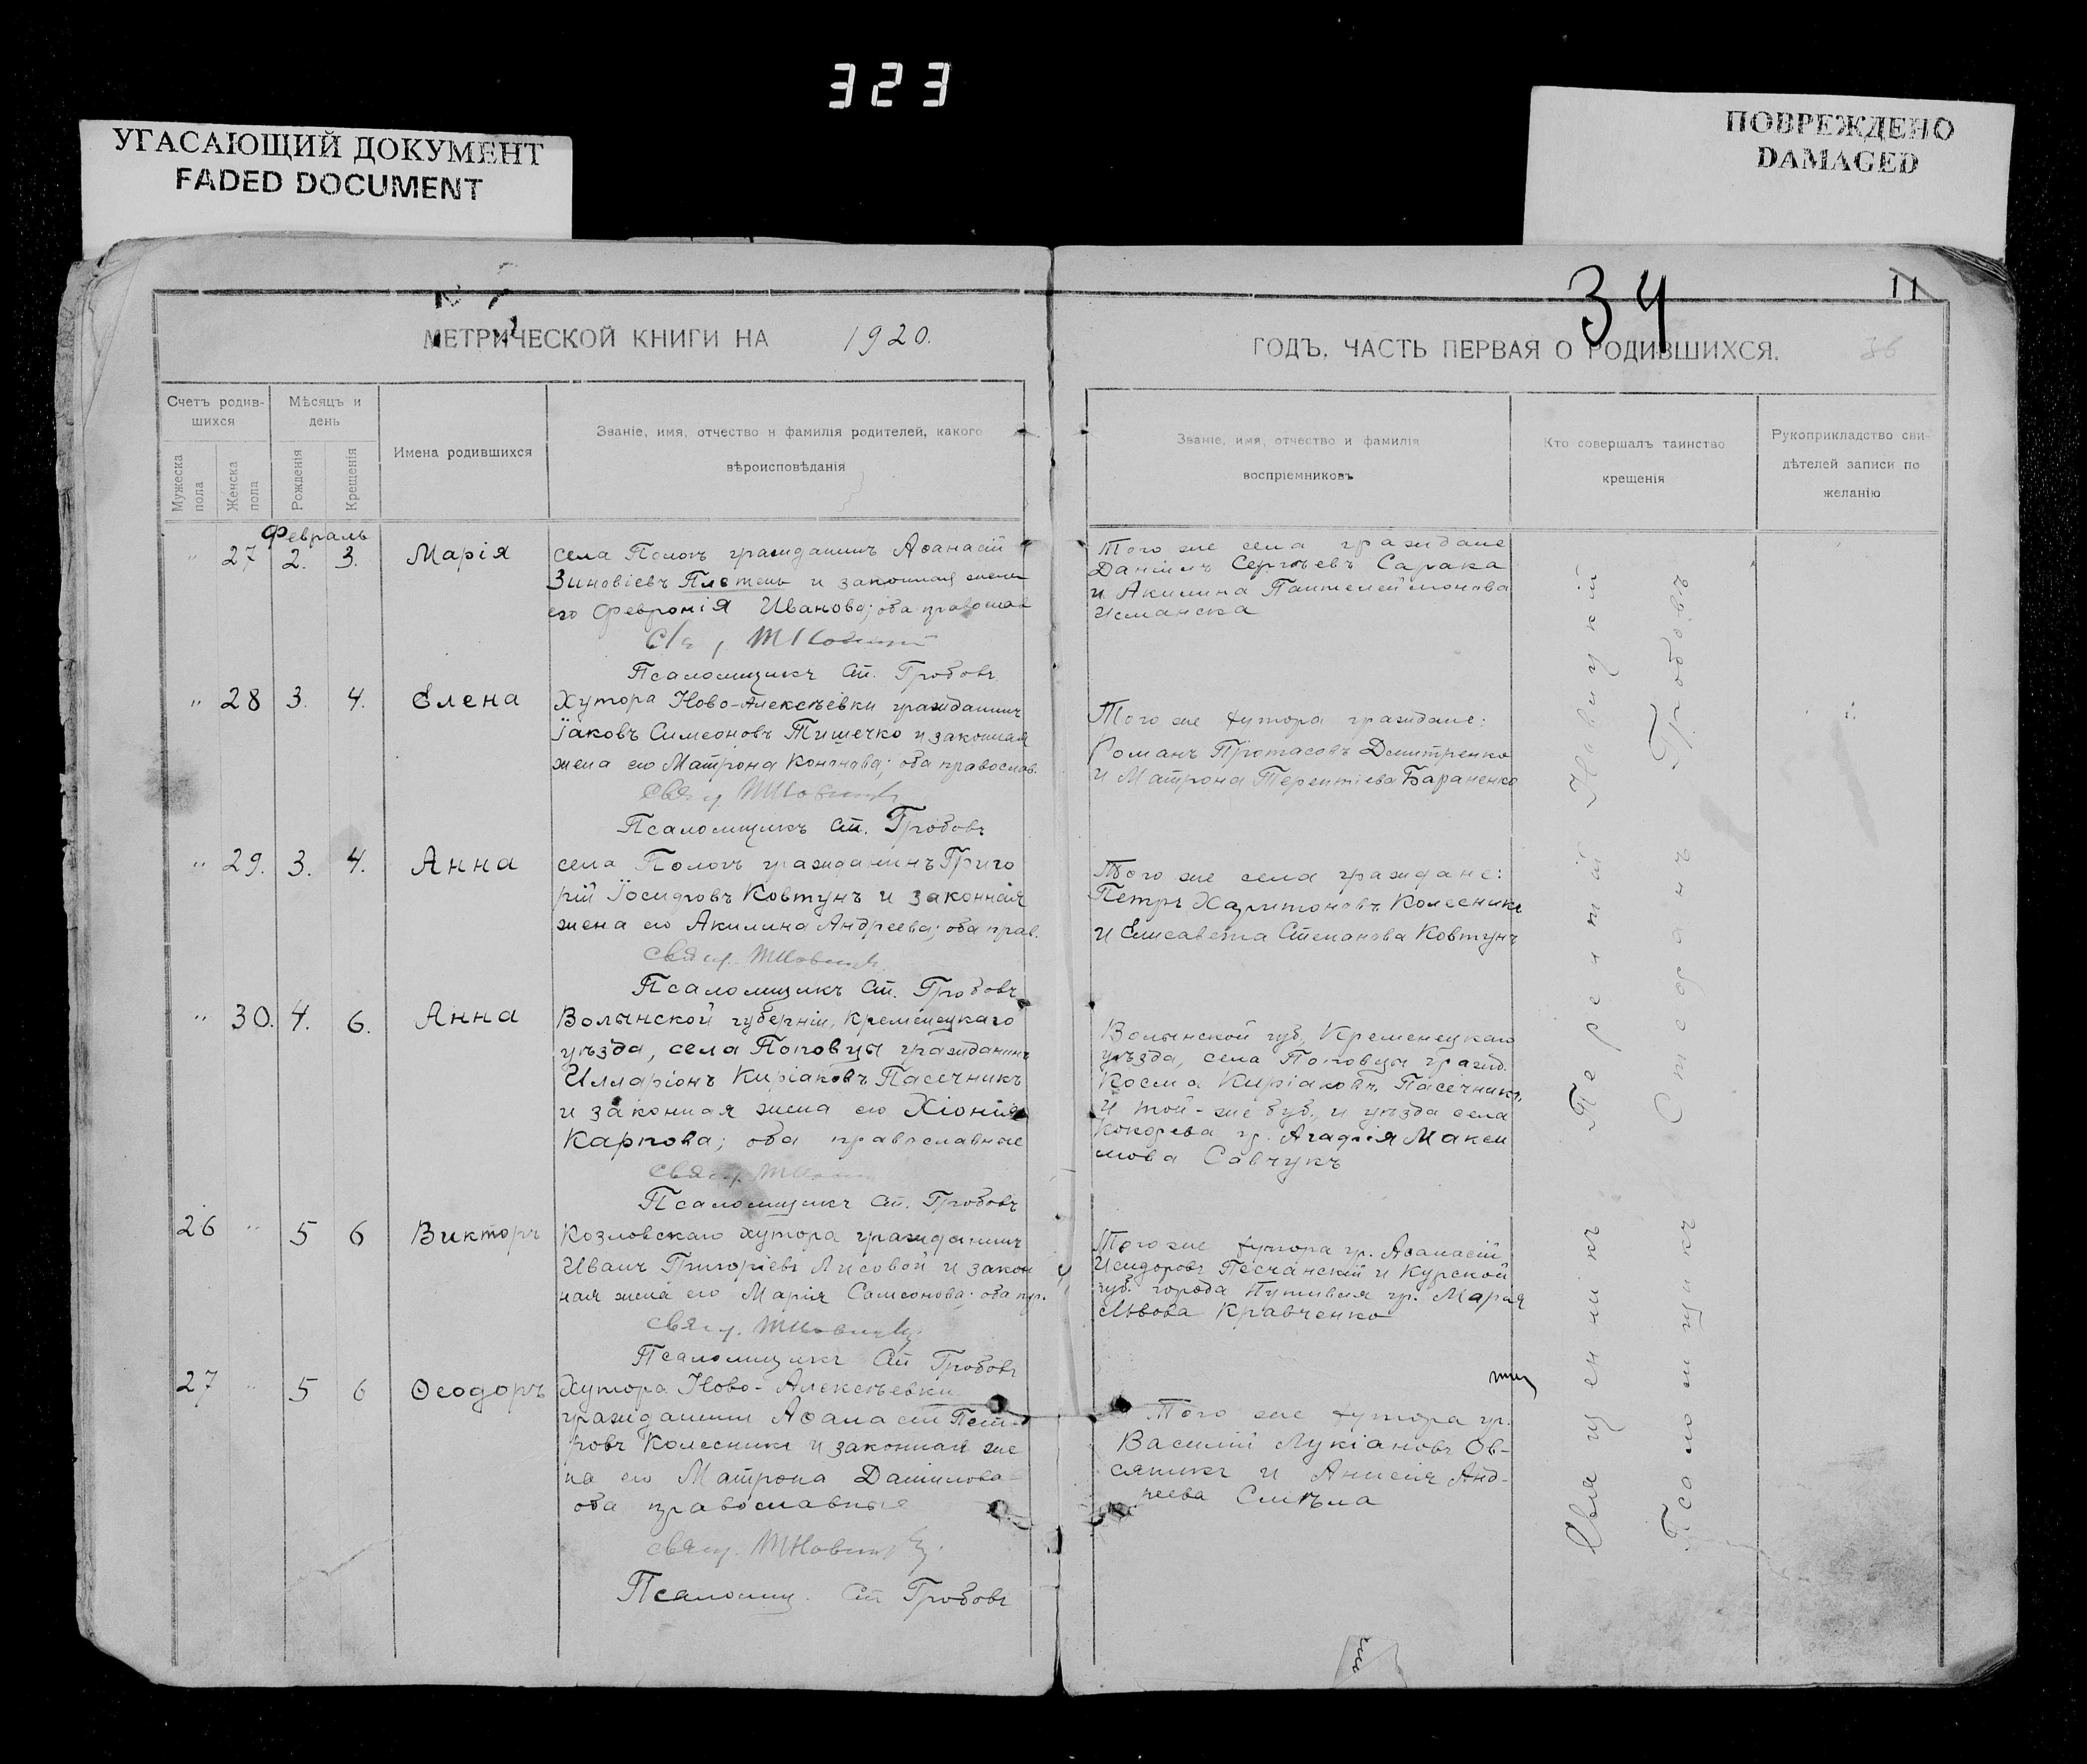 323
УГАСАЮЩИЙ ДОКУМЕНТ
FADED DOCUMENT
ПОВРЕЖДЕНО
DAMAGED
34
11
МЕТРИЧЕСКОЙ КНИГИ НА 1920.
ГОДЪ, ЧАСТЬ ПЕРВАЯ О РОДИВШИХСЯ.
36
Счетъ родив-
шихся
Мужеска
пола
Женска
пола
Мѣсяцъ и
день
Рожденія
Крещенія
Имена родившихся
Званіе, имя, отчество и фамилія родителей, какого
вѣроисповѣданія
Званіе, имя, отчество и фамилія
воспріемниковъ
Кто совершалъ таинство
крещенія
Рукоприкладство сви-
дѣтелей записи по
желанію
Февраль
" 27 2. 3. Марія
села Пологъ гражданинъ Аѳанасій
Зиновіевъ Плетень и законная жена
его Февронія Иванова; оба православ
Псаломщикъ Ст. Гробовъ
Того же села граждане
Даніилъ Сергѣевъ Сарака
и Акилина Пантелеймонова
" 28 3. 4. Елена
Хутора Ново-Алексѣевки гражданинъ
Іаковъ Симеоновъ Тишечко и законная
жена его Матрона Кононова; оба православ.
Свящ. ТНовицкій
Псаломщикъ Ст. Гробовъ
Того же хутора граждане:
Романъ Протасовъ Дмитренко
и Матрона Терентіева Бараненко
" 29. 3. 4. Анна
села Пологъ гражданинъ Григо
рій Іосифовъ Ковтунъ и законная
жена его Акилина Андреева; оба прав.
Свящ. ТНовицкій
Псаломщикъ Ст. Гробовъ
Того же села граждане:
Петръ Харитоновъ Колесникъ
и Елисавета Степанова Ковтунъ
" 30. 4. 6. Анна
Волынской губерніи, Кременецкаго
уѣзда, села Поповцы гражданинъ
Илларіонъ Киріаковъ Пасечникъ
и законная жена его Хіонія
Карпова; оба православные
Свящ. ТНовицкій
Псаломщикъ Ст. Гробовъ
Волынской губ., Кременецкаго
уѣзда, села Поповцы гражд.
Косма Киріаковъ Пасечникъ,
и той-же губ., и уѣзда села
Кокорева гр. Агафія Макси
мова Савчукъ
26 " 5 6 Викторъ
Козловскаго хутора гражданинъ
Иванъ Григоріевъ Лисовой и закон
ная жена его Марія Самсонова; оба пр.
Свящ. ТНовицкій
Псаломщикъ Ст Гробовъ
Того же хутора гр. Аѳанасій
Исидоровъ Песчанскій и Курской
губ. города Путивля гр. Марія
Львова Кравченко
27 " 5 6 Ѳеодоръ
Хутора Ново-Алексѣевки
гражданинъ Аѳанасій Пет-
ровъ Колесникъ и законная же
на его Матрона Даниилова
оба православные
Свящ. ТНовицкій
Псаломщ. Ст Гробовъ
Того же хутора гр.
Василій Лукіановъ Ов-
сяникъ и Анисія Анд-
реева Смѣла
Священникъ Терентій Новицкій
Псаломщикъ Стефанъ Гробовъ